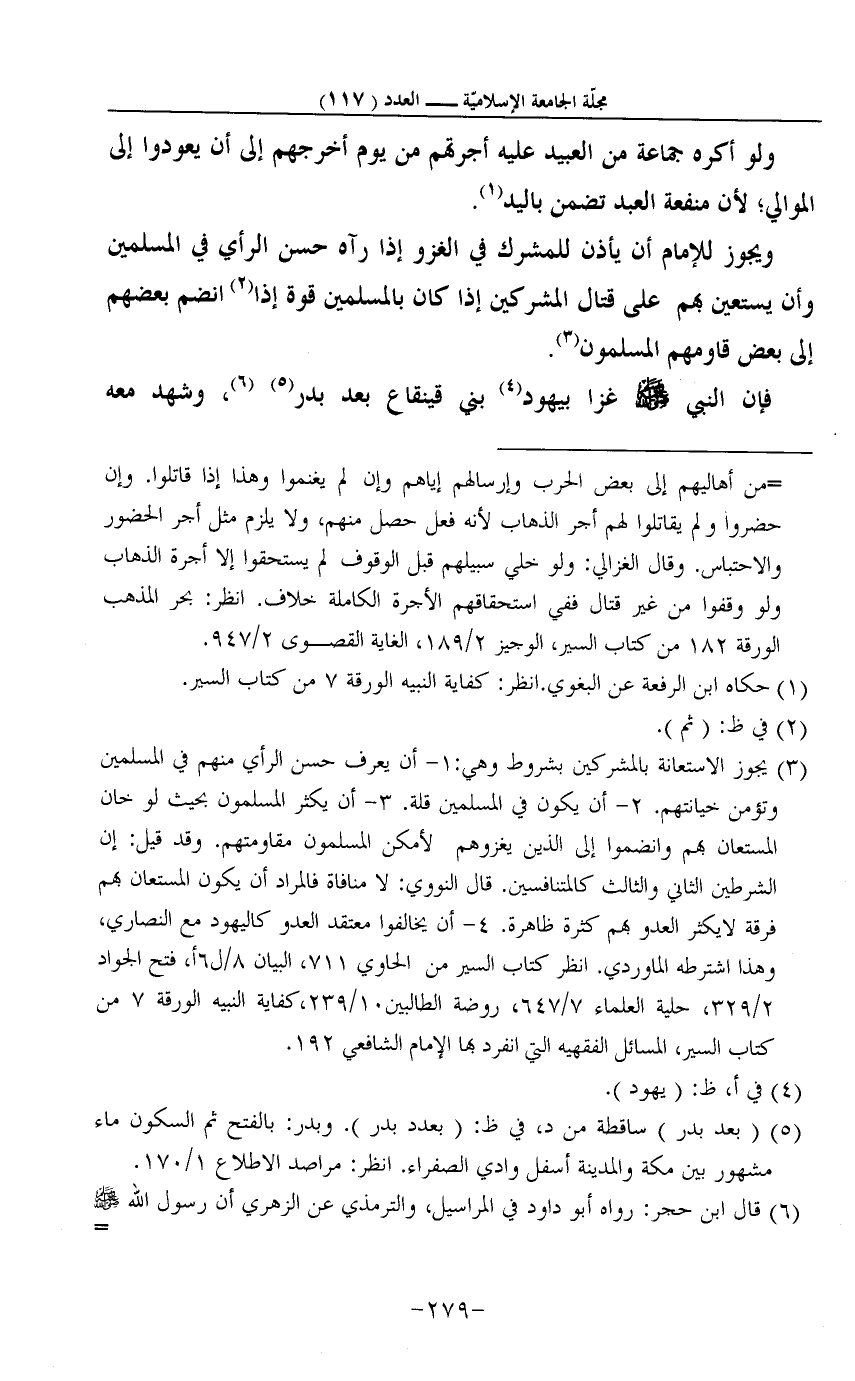 مجلّة الجامعة الإسلاميّة ـــ العدد (١١٧)
ولو أكره جماعة من العبيد عليه أجرتهم من يوم أخرجهم إلى أن يعودوا إلى
الموالي؛ لأن منفعة العبد تضمن باليد(١).
ويجوز للإمام أن يأذن للمشرك في الغزو إذا رآه حسن الرأي في المسلمين
وأن يستعين بهم على قتال المشركين إذا كان بالمسلمين قوة إذا(٢) انضم بعضهم
إلى بعض قاومهم المسلمون(٣).
فإن النبي ﷺ غزا بيهود(٤) بني قينقاع بعد بدر(٥) (٦)، وشهد معه
=من أهاليهم إلى بعض الحرب وإرسالهم إياهم وإن لم يغنموا وهذا إذا قاتلوا. وإن
حضروا ولم يقاتلوا لهم أجر الذهاب لأنه فعل حصل منهم، ولا يلزم مثل أجر الحضور
والاحتباس. وقال الغزالي: ولو خلي سبيلهم قبل الوقوف لم يستحقوا إلا أجرة الذهاب
ولو وقفوا من غير قتال ففي استحقاقهم الأجرة الكاملة خلاف. انظر: بحر المذهب
الورقة ١٨٢ من كتاب السير، الوجيز ١٨٩/٢، الغاية القصـوى ٩٤٧/٢.
(١) حكاه ابن الرفعة عن البغوي.انظر: كفاية النبيه الورقة ٧ من كتاب السير.
(٢) في ظ: ( ثم ).
(٣) يجوز الاستعانة بالمشركين بشروط وهي:١- أن يعرف حسن الرأي منهم في المسلمين
وتؤمن خيانتهم. ٢- أن يكون في المسلمين قلة. ٣- أن يكثر المسلمون بحيث لو خان
المستعان بهم وانضموا إلى الذين يغزوهم لأمكن المسلمون مقاومتهم. وقد قيل: إن
الشرطين الثاني والثالث كالمتنافسين. قال النووي: لا منافاة فالمراد أن يكون المستعان بهم
فرقة لايكثر العدو بهم كثرة ظاهرة. ٤- أن يخالفوا معتقد العدو كاليهود مع النصاري،
وهذا اشترطه الماوردي. انظر كتاب السير من الحاوي ٧١١، البيان ٨/ل٦أ، فتح الجواد
٣٢٩/٢، حلية العلماء ٦٤٧/٧، روضة الطالبين٢٣٩/١٠،كفاية النبيه الورقة ٧ من
كتاب السير، المسائل الفقهيه التي انفرد بها الإمام الشافعي ١٩٢.
(٤) في أ، ظ: ( يهود ).
(٥) ( بعد بدر ) ساقطة من د، في ظ: ( بعدد بدر ). وبدر: بالفتح ثم السكون ماء
مشهور بين مكة والمدينة أسفل وادي الصفراء. انظر: مراصد الاطلاع ١٧٠/١.
(٦) قال ابن حجر: رواه أبو داود في المراسيل، والترمذي عن الزهري أن رسول الله ﷺ
=
-٢٧٩-